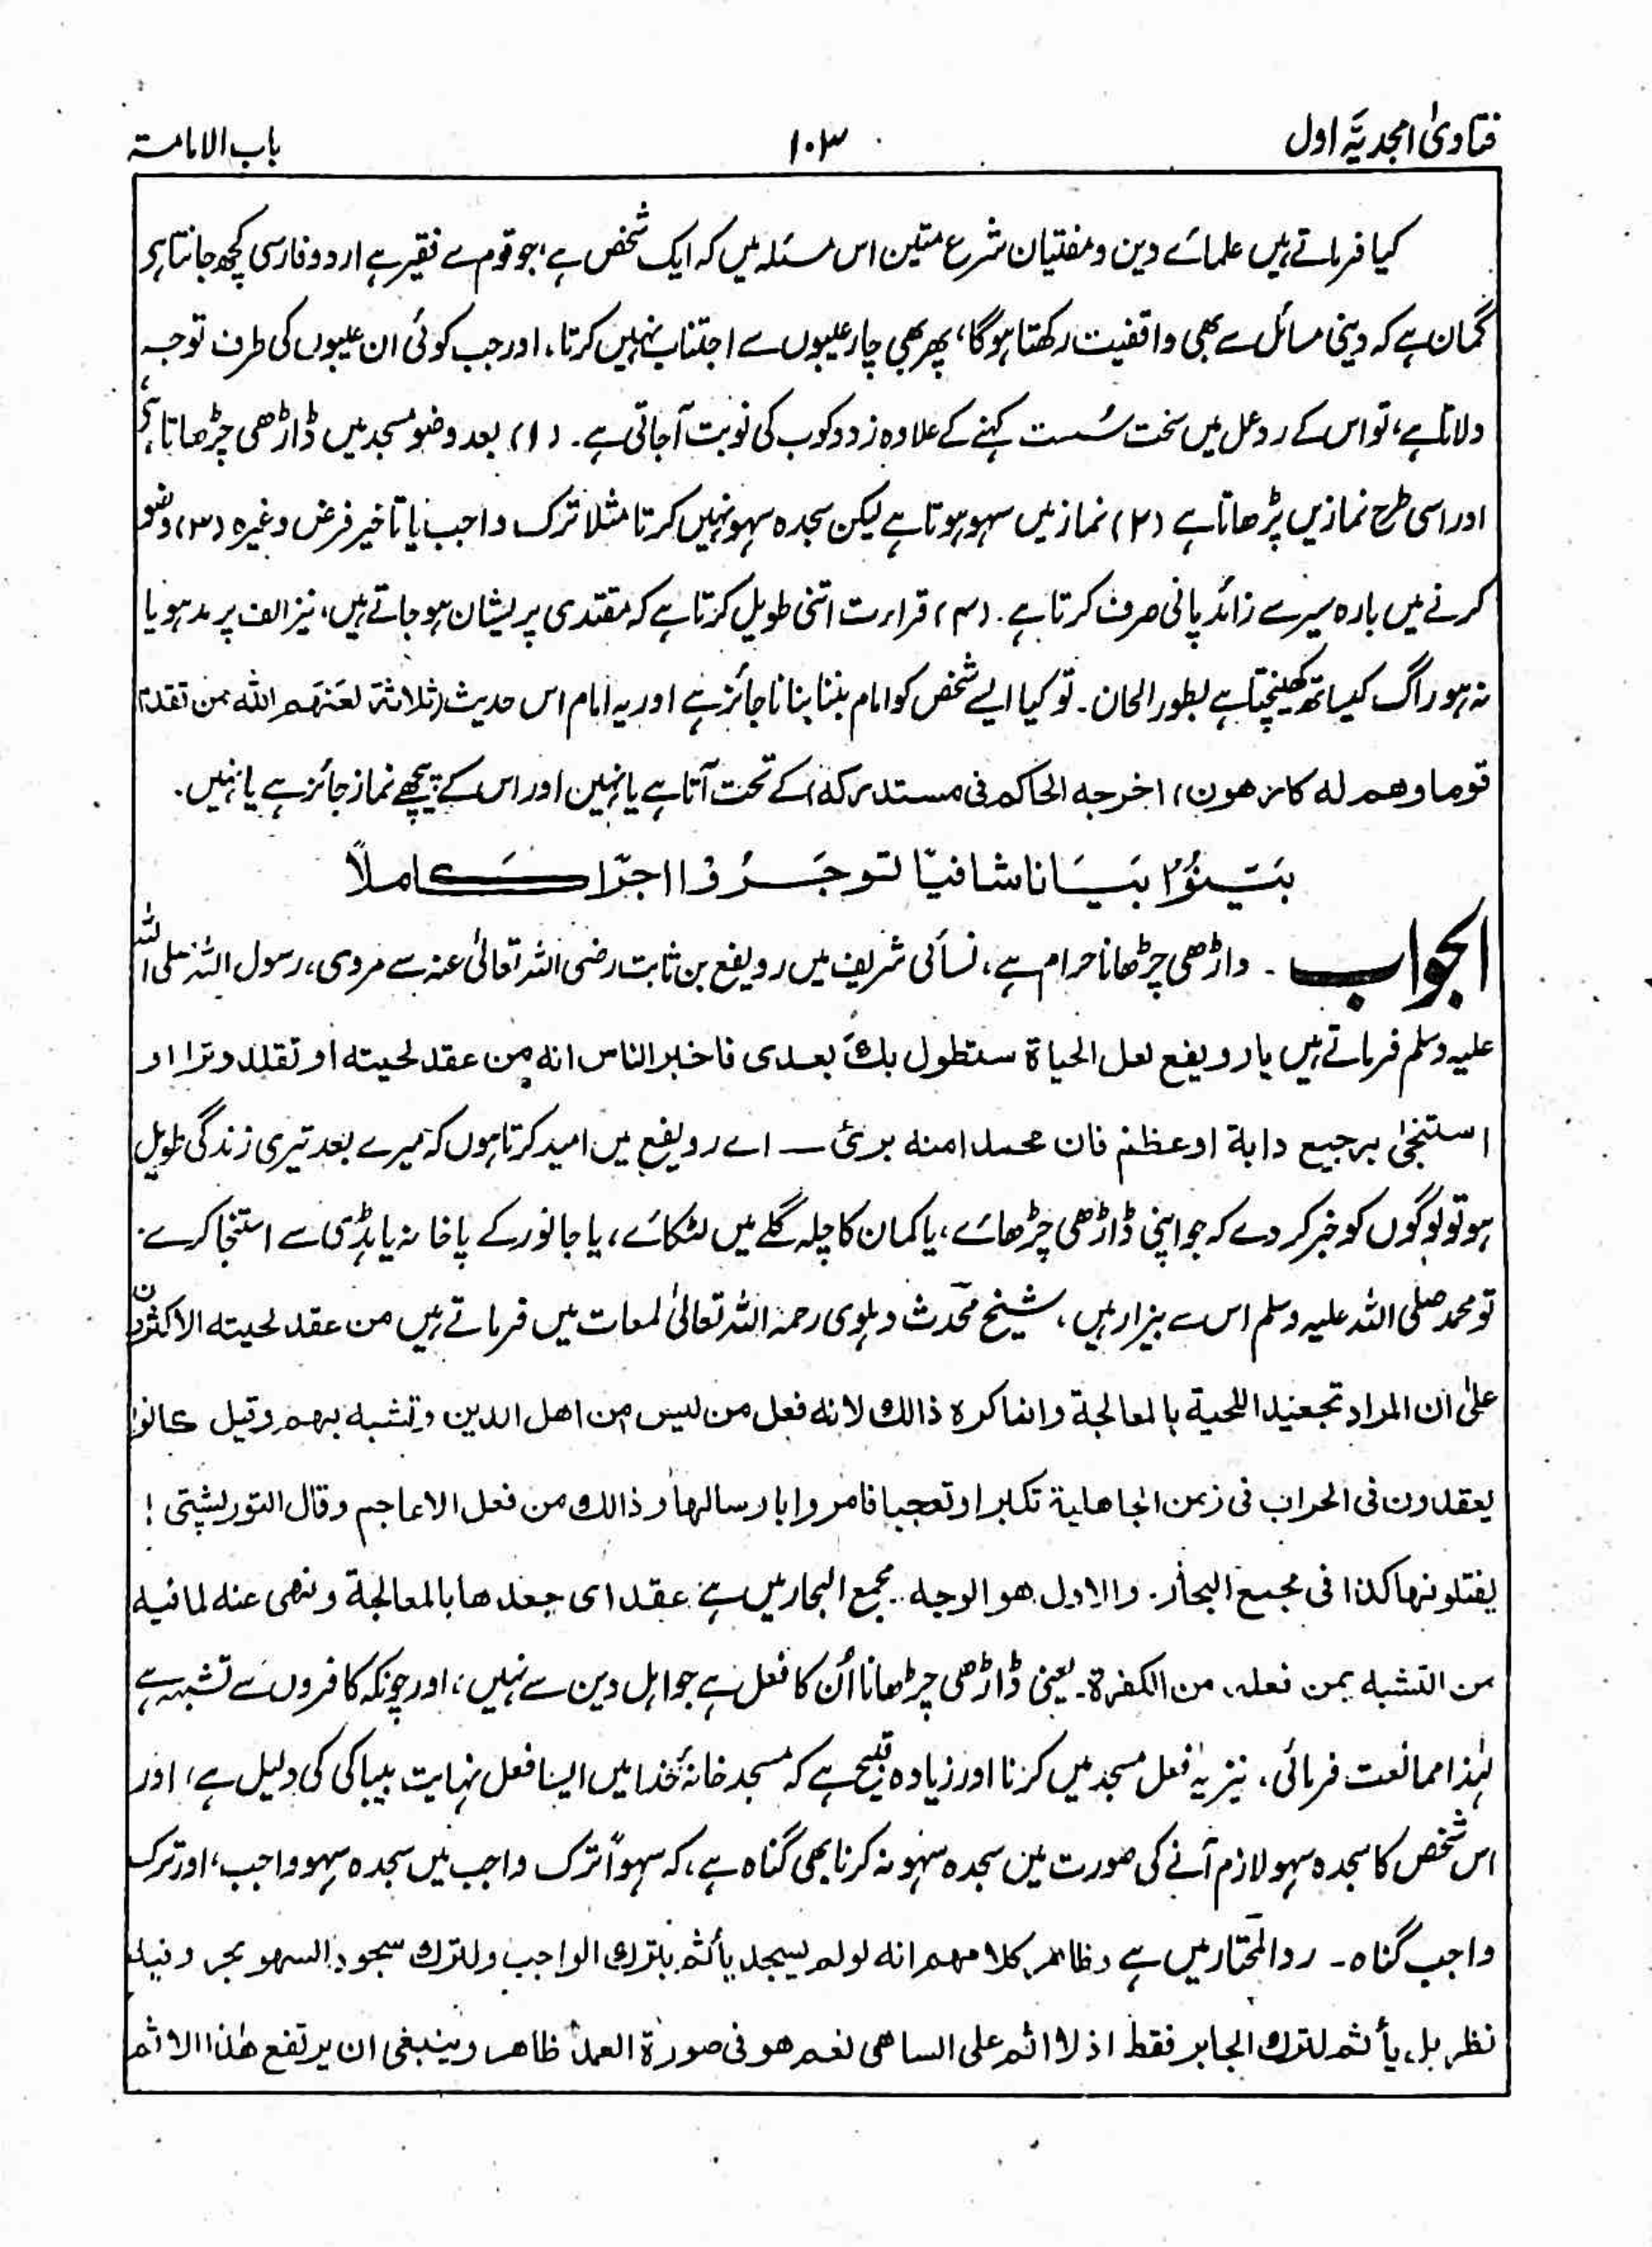 فتاویٰ امجدیَّہ اول
۱۰۳
باب الامامۃ
کیا فرماتے ہیں علمائے دین و مفتیان شرع متین اس مسئلہ میں کہ ایک شخص ہے، جو قوم سے فقیر ہے اردو فارسی کچھ جانتا ہے
گمان ہے کہ دینی مسائل سے بھی واقفیت رکھتا ہوگا، پھر بھی چار عیبوں سے اجتناب نہیں کرتا، اور جب کوئی ان عیبوں کی طرف توجہ
دلاتا ہے، تو اس کے ردعمل میں سخت سُست کہنے کے علاوہ زدوکوب کی نوبت آجاتی ہے۔ (۱) بعد وضو مسجد میں ڈاڑھی چڑھاتا ہے
اور اسی طرح نمازیں پڑھاتا ہے (۲) نماز میں سہو ہوتا ہے لیکن سجدہ سہو نہیں کرتا مثلا ترک واجب یا تاخیر فرض وغیرہ (۳) وضو
کرنے میں بارہ سیر سے زائد پانی صرف کرتا ہے۔ (۴) قراءت اتنی طویل کرتا ہے کہ مقتدی پریشان ہو جاتے ہیں، نیز الف پر مد ہو یا
نہ ہو راگ کیساتھ کھینچتا ہے بطور الحان۔ تو کیا ایسے شخص کو امام بننا بنانا جائز ہے اور یہ امام اس حدیث (ثلاثۃ لعنہم اللہ من تقدم
قوما وھم لہ کارھون) اخرجہ الحاکم فی مستدرکہ) کے تحت آتا ہے یا نہیں اور اس کے پیچھے نماز جائز ہے یا نہیں۔
بَیِّنُوْا بَیَانا شافیّا توجَرُوْا اجرًا کاملاً
الجواب ۔ داڑھی چڑھانا حرام ہے، نسائی شریف میں رویفع بن ثابت رضی اللہ تعالیٰ عنہ سے مروی، رسول اللہ صلی اللہ
علیہ وسلم فرماتے ہیں یا رویفع لعل الحیاۃ ستطول بکَ بعدی فاخبر الناس انہ من عقد لحیتہ او تقلد وترا او
استنجیٰ برجیع دابۃ او عظم فان محمدا منہ برئ — اے رویفع میں امید کرتا ہوں کہ میرے بعد تیری زندگی طویل
ہو تو لوگوں کو خبر کر دے کہ جو اپنی ڈاڑھی چڑھائے، یا کمان کا چلہ گلے میں لٹکائے، یا جانور کے پاخانہ یا ہڈی سے استنجا کرے۔
تو محمد صلی اللہ علیہ وسلم اس سے بیزار ہیں، شیخ محدث دہلوی رحمہ اللہ تعالیٰ لمعات میں فرماتے ہیں من عقد لحیتہ الاکثرون
علیٰ ان المراد تجعید اللحیۃ بالمعالجۃ وانما کرہ ذالک لانہ فعل من لیس من اھل الدین وتشبہ بھم وقیل کانوا
یعقدون فی الحراب فی زمن الجاھلیۃ تکبرا وتعجبا فامروا بارسالھا وذالک من فعل الاعاجم وقال التورپشتی !
یفتلونھا کذا فی مجمع البحار۔ والاول ھو الوجہ۔ مجمع البحار میں ہے عقد ای جعدھا بالمعالجۃ ونھی عنہ لما فیہ
من التشبہ بمن فعلہ من الکفرۃ۔ یعنی ڈاڑھی چڑھانا اُن کا فعل ہے جو اہل دین سے نہیں، اور چونکہ کافروں سے تشبہ ہے
لہٰذا ممانعت فرمائی، نیز یہ فعل مسجد میں کرنا اور زیادہ قبیح ہے کہ مسجد خانۂ خدا میں ایسا فعل نہایت بیباکی کی دلیل ہے، اور
اس شخص کا سجدہ سہو لازم آنے کی صورت میں سجدہ سہو نہ کرنا بھی گناہ ہے، کہ سہواً ترک واجب میں سجدہ سہو واجب، اور ترک
واجب گناہ۔ ردالمحتار میں ہے وظاھر کلامھم انہ لو لم یسجد یأثم بترک الواجب ولترک سجود السھو بحر وفیہ
نظر بل یأثم لترک الجابر فقط اذ لا اثم علی الساھی نعم ھو فی صورۃ العمد ظاھر وینبغی ان یرتفع ھٰذا الاثم